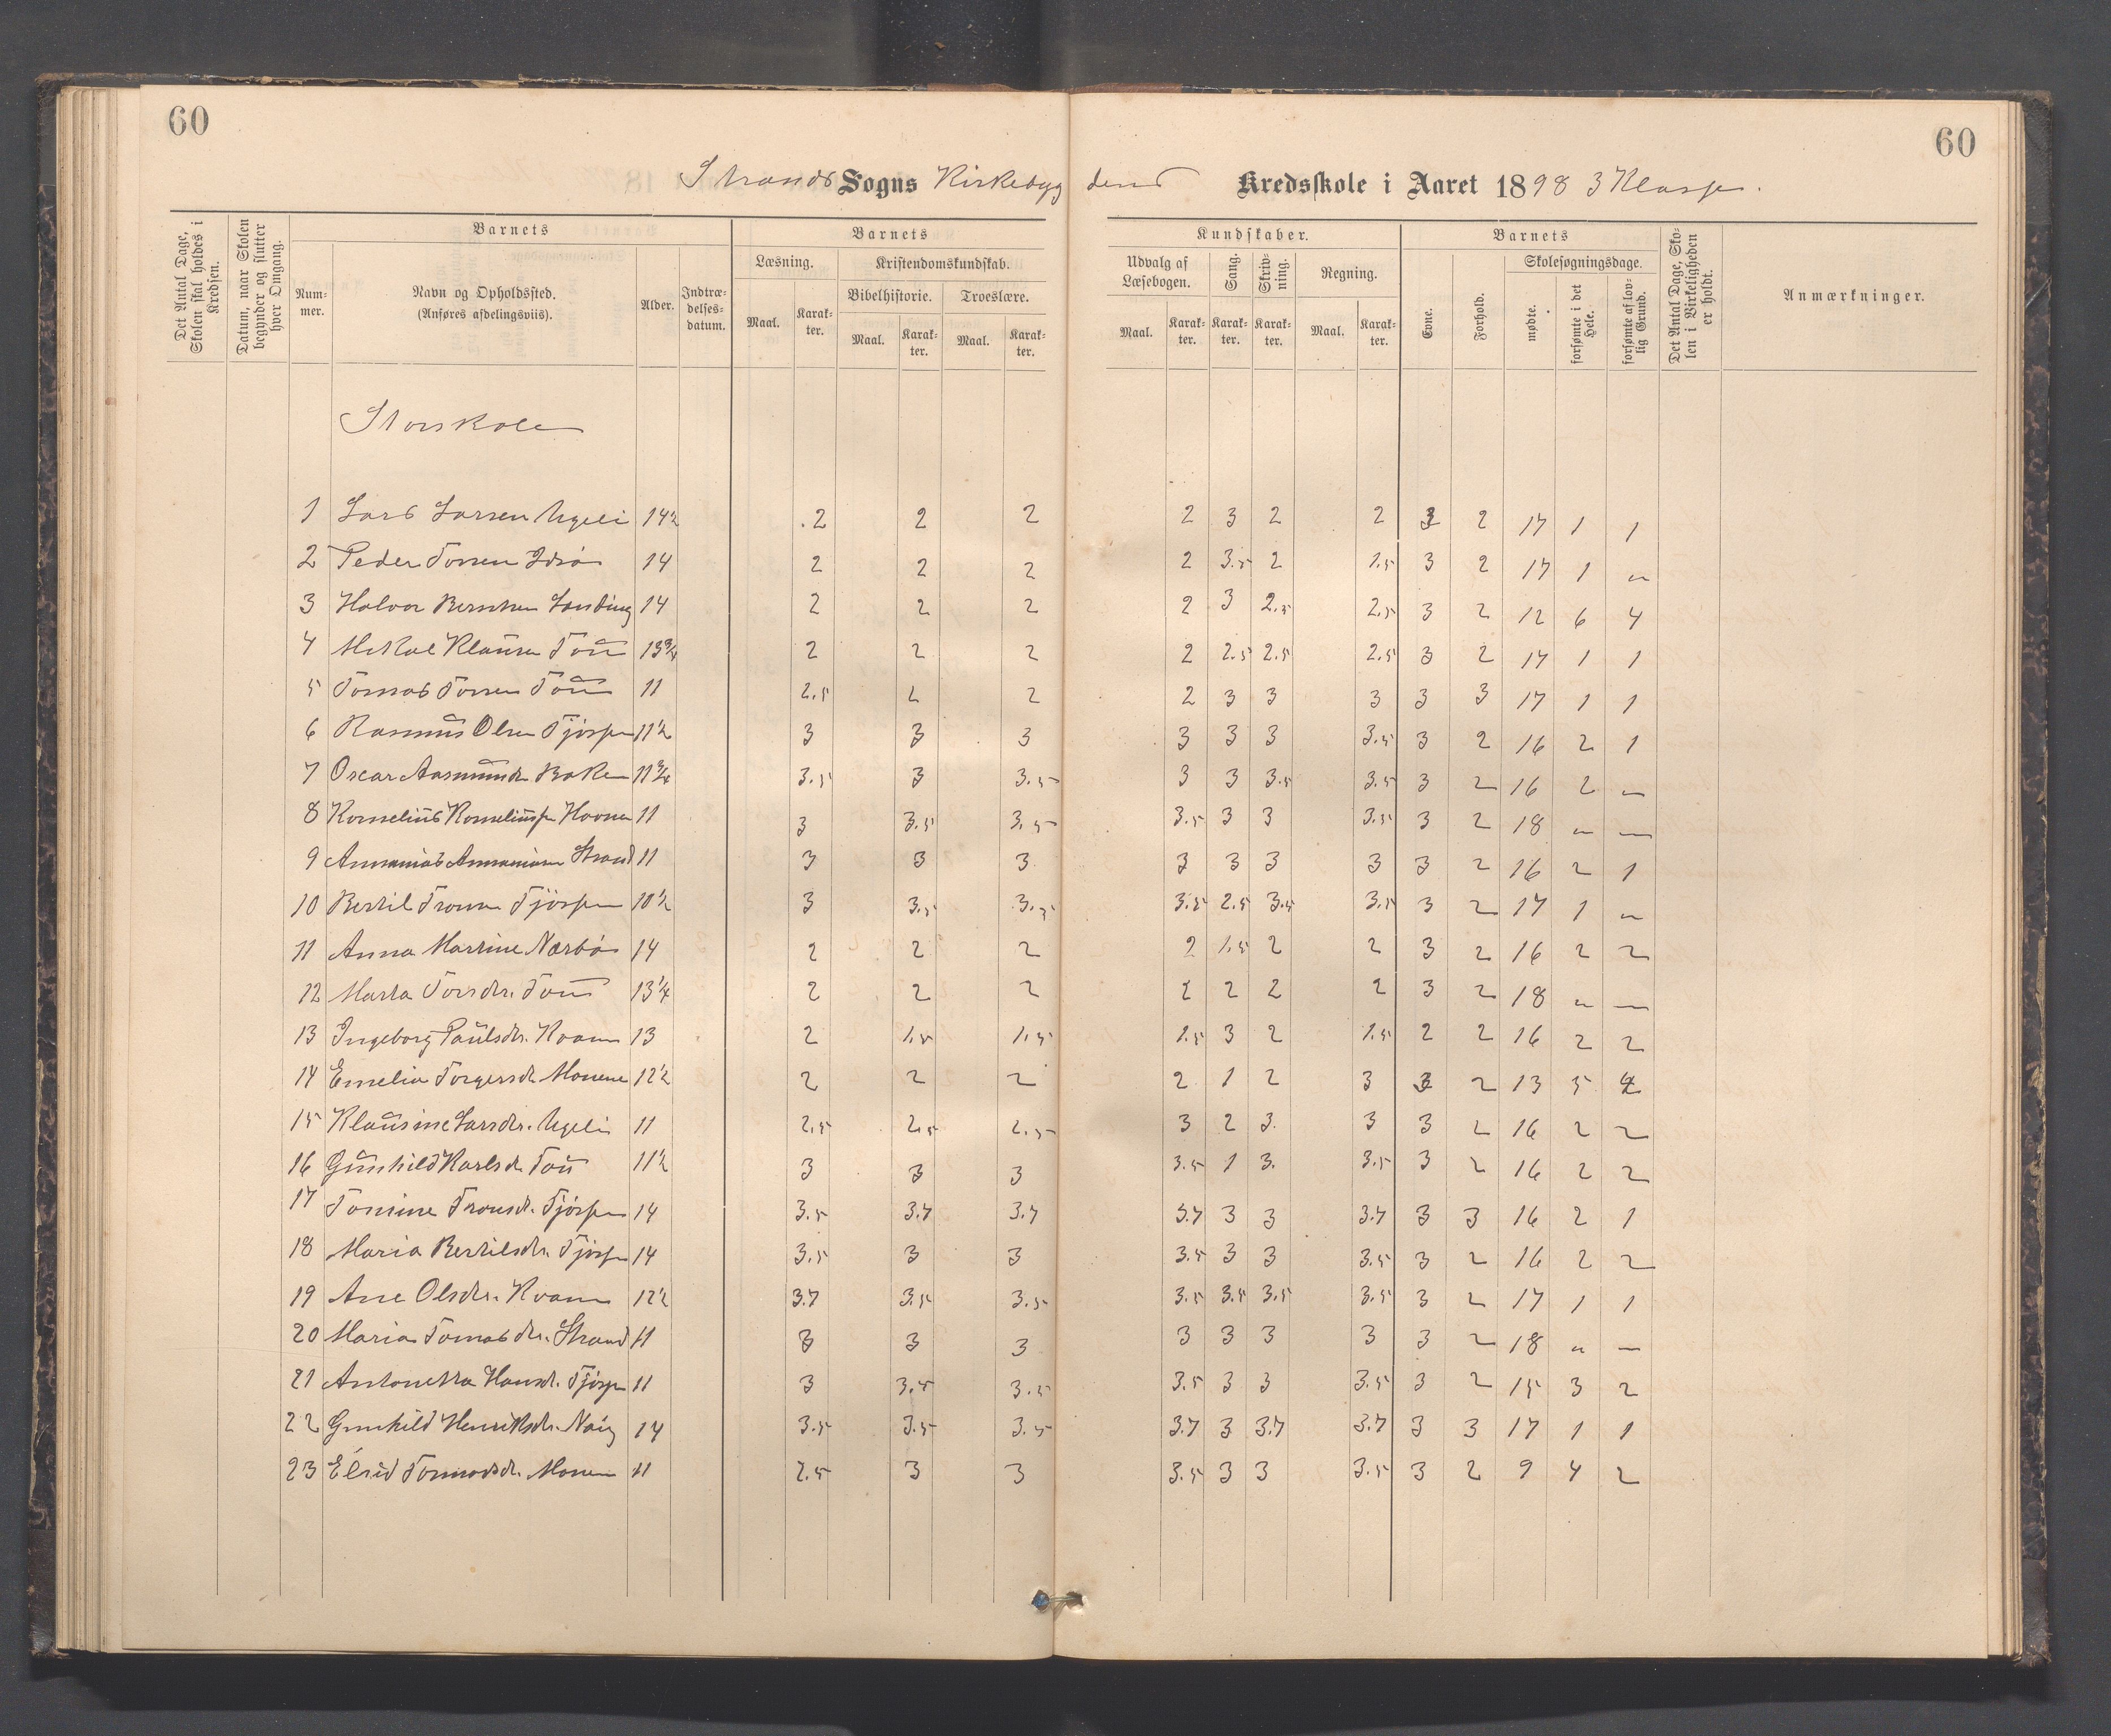 60
60
Strands Sogns Kirkebygdens Kredsskole i Aaret 1898 3 Klasse.
Det Antal Dage, Skolen skal holdes i Kredsen.
Datum, naar Skolen begynder og slutter hver Omgang.
Barnets
Num-mer.
Navn og Opholdssted.
(Anføres afdelingsviis).
Alder.
Indtræ-delses-datum.
Barnets
Kundskaber.
Læsning. Kristendomskundskab. Udvalg af Læsebogen. Sang. Skriv-ning. Regning.
Bibelhistorie. Troeslære.
Maal. Karak-ter. Maal. Karak-ter. Maal. Karak-ter. Maal. Karak-ter. Karak-ter. Karak-ter. Maal. Karak-ter.
Barnets
Evne. Forhold.
Skolesøgningsdage.
mødte. forsømte i det Hele. forsømte af lov-lig Grund.
Det Antal Dage, Sko-len i Virkeligheden er holdt.
Anmærkninger.
Storskole
1 Lars Larsen 14½ 2 2 2 2 3 2 2 3 2 17 1 1
2 Peder Torsen Idsø 14 2 2 2 2 3.5 2 1.5 3 2 17 1 "
3 Halvor 14 2 2 2 2 3 2.5 2.5 3 2 12 6 4
4 Mikal Klausen Tou 13¾ 2 2 2 2 2.5 2.5 2.5 3 2 17 1 1
5 Tomas Torsen Tou 11 2.5 2 2 2 3 3 3 3 3 17 1 1
6 Rasmus Olsen Fjörsfn 11½ 3 3 3 3 3 3 3.5 3 2 16 2 1
7 Oscar Aasmunds. Baken 11¾ 3.5 3 3.5 3 3 3.5 3.5 3 2 16 2 "
8 Kornelius Korneliussen 11 3 3.5 3.5 3.5 3 3 3.5 3 2 18 " —
9 Annanias Annaniasen Strand 11 3 3 3 3 3 3 3 3 2 16 2 1
10 Bertil 10½ 3 3.5 3.5 3.5 2.5 3.5 3.5 3 2 17 1 "
11 Anna Martine Nærbø 14 2 2 2 2 1.5 2 2 3 2 16 2 2
12 Marta Torsdtr. Tou 13¼ 2 2 2 2 2 2 2 3 2 18 " —
13 Ingeborg Paulsdtr. Kvam 13 2 1.5 1.5 1.5 3 2 1.5 2 2 16 2 2
14 Emelia Torgersdtr. Monene 12½ 2 2 2 2 1 2 3 3 2 13 5 4
15 Klausine Larsdtr. 11 2.5 2.5 2.5 3 2 3. 3 3 2 16 2 2
16 Gunhild Karlsdtr. Tou 11½ 3 3 3 3.5 1 3. 3.5 3 2 16 2 2
17 Tomine 14 3.5 3.7 3.7 3.7 3 3 3.7 3 3 16 2 1
18 Maria Bertilsdtr. 14 3.5 3 3 3.5 3 3 3.5 3 2 16 2 2
19 Ane Olsdtr. Kvam 12½ 3.7 3.5 3.5 3.5 3.5 3.5 3.5 3 2 17 1 1
20 Maria Tomasdtr. Strand 11 3 3 3 3 3 3 3 3 2 18 " —
21 Antonetta Hansdtr. 11 3 3.5 3.5 3.5 3 3 3.5 3 2 15 3 2
22 Gunhild Henriksdtr. 14 3.5 3.5 3.5 3.7 3 3.7 3.7 3 3 17 1 1
23 Elsid 11 2.5 3 3 3.5 3 3 3.5 3 2 9 4 2